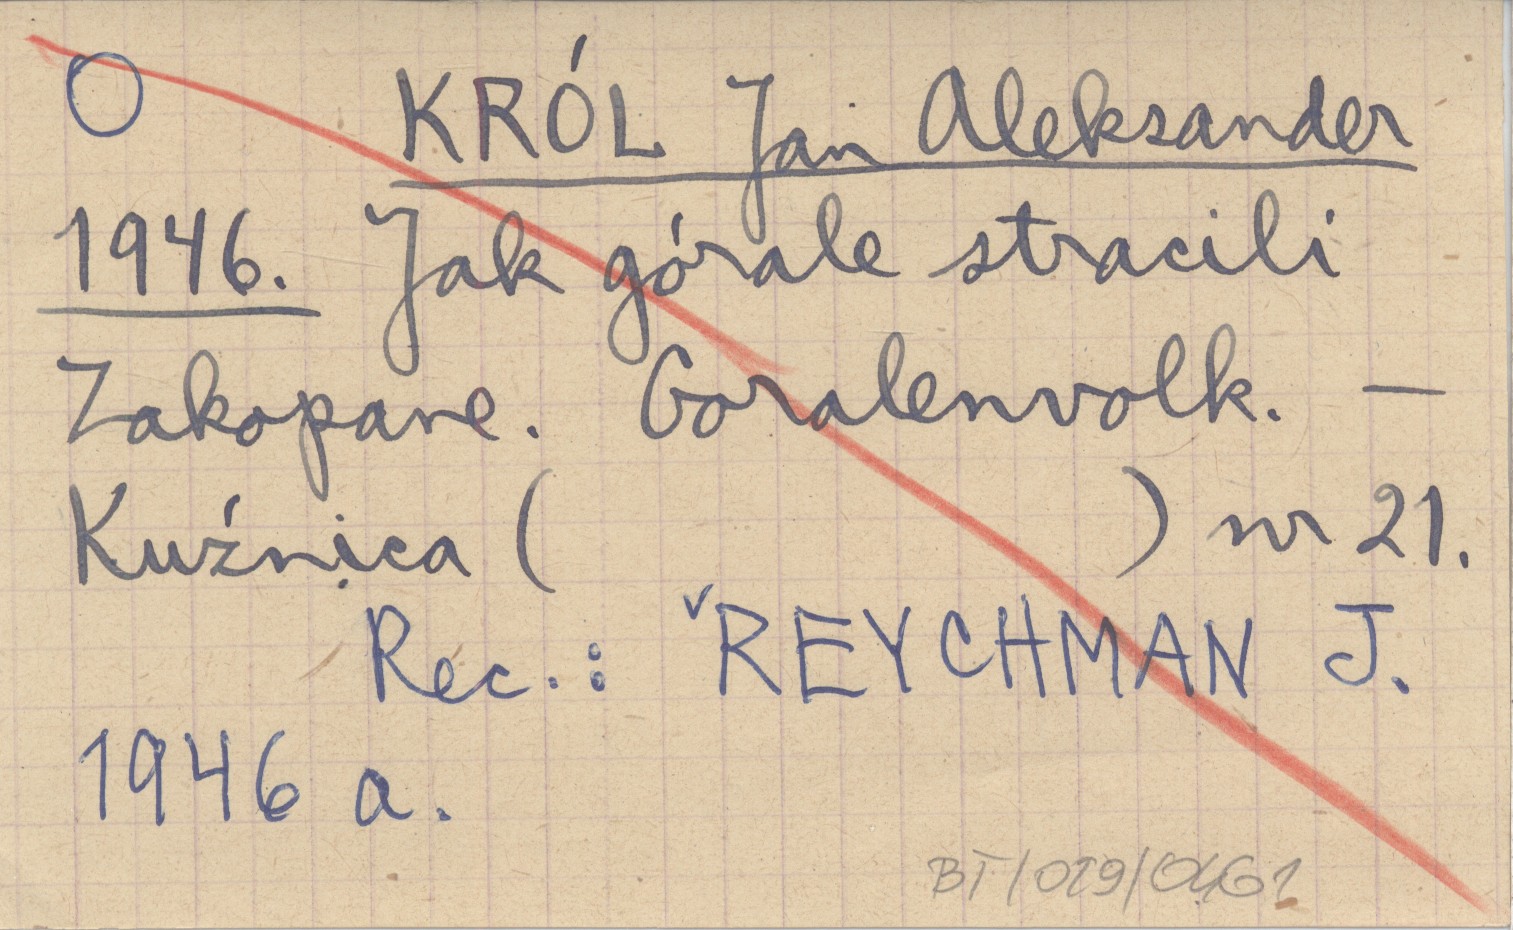 KRÓL Jan Aleksander
1946. Jak górale stracili
Zakopane. Goralenvolk. —
Kuźnica ( ) nr 21.
Rec.: ˇREYCHMAN J.
1946 a.
BT/029/0461